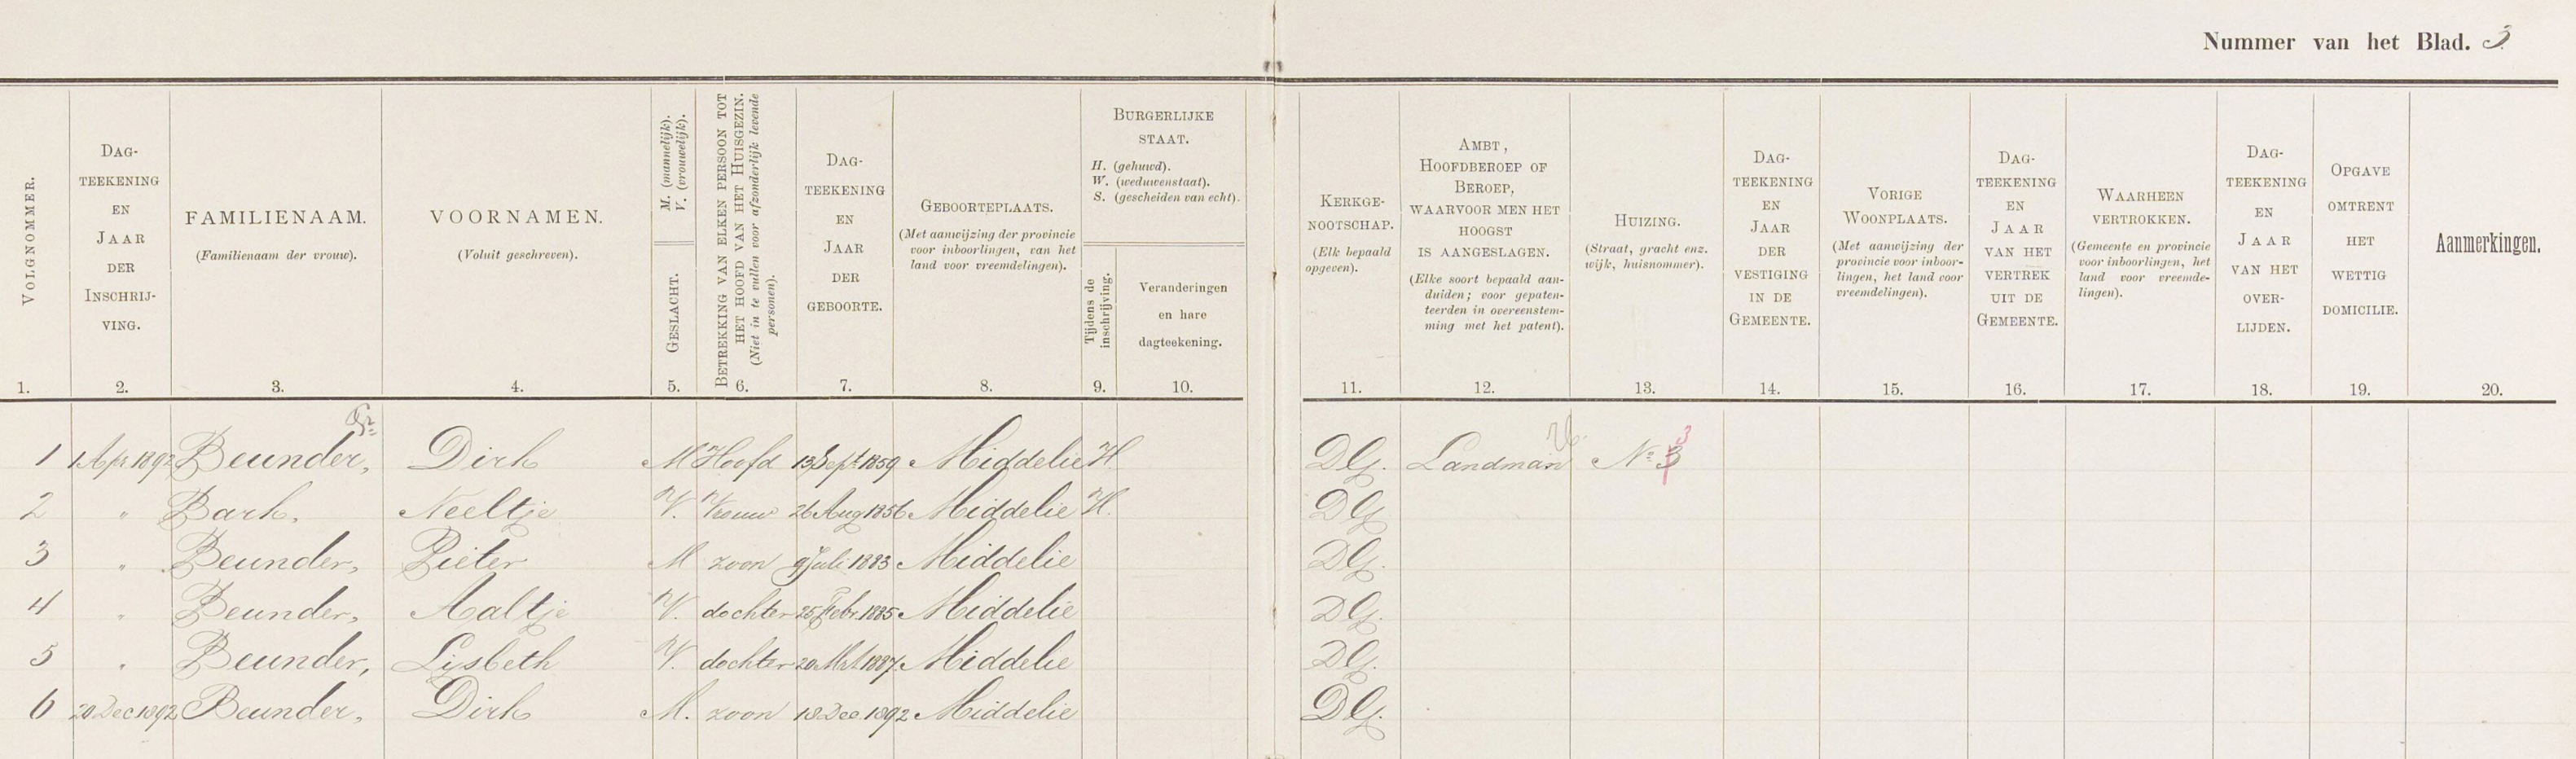 Nummer van het Blad. 3
VOLGNOMMER.
DAG-
TEEKENING
EN
JAAR
DER
INSCHRIJ-
VING.
FAMILIENAAM.
(Familienaam der vrouw).
VOORNAMEN.
(Voluit geschreven).
M. (mannelijk).
V. (vrouwelijk).
GESLACHT.
BETREKKING VAN ELKEN PERSOON TOT
HET HOOFD VAN HET HUISGEZIN.
(Niet in te vullen voor afzonderlijk levende
personen).
DAG-
TEEKENING
EN
JAAR
DER
GEBOORTE.
GEBOORTEPLAATS.
(Met aanwijzing der provincie
voor inboorlingen, van het
land voor vreemdelingen).
BURGERLIJKE
STAAT.
H. (gehuwd).
W. (weduwenstaat).
S. (gescheiden van echt).
Tijdens de
inschrijving.
Veranderingen
en hare
dagteekening.
KERKGE-
NOOTSCHAP.
(Elk bepaald
opgeven).
AMBT,
HOOFDBEROEP OF
BEROEP,
WAARVOOR MEN HET
HOOGST
IS AANGESLAGEN.
(Elke soort bepaald aan-
duiden; voor gepaten-
teerden in overeenstem-
ming met het patent).
HUIZING.
(Straat, gracht enz.
wijk, huisnommer).
DAG-
TEEKENING
EN
JAAR
DER
VESTIGING
IN DE
GEMEENTE.
VORIGE
WOONPLAATS.
(Met aanwijzing der
provincie voor inboor-
lingen, het land voor
vreemdelingen).
DAG-
TEEKENING
EN
JAAR
VAN HET
VERTREK
UIT DE
GEMEENTE.
WAARHEEN
VERTROKKEN.
(Gemeente en provincie
voor inboorlingen, het
land voor vreemde-
lingen).
DAG-
TEEKENING
EN
JAAR
VAN HET
OVER-
LIJDEN.
OPGAVE
OMTRENT
HET
WETTIG
DOMICILIE.
Aanmerkingen.
1. 2. 3. 4. 5. 6. 7. 8. 9. 10. 11. 12. 13. 14. 15. 16. 17. 18. 19. 20.
1 1 Apr 1892 Beunder, Dirk M Hoofd 13 Sept 1859 Middelie H. DG. Landman No 3 3
2 " Bark, Neeltje V. Vrouw 26 Aug 1856 Middelie H. DG
3 " Beunder, Pieter M zoon 9 Juli 1883 Middelie DG.
4 " Beunder, Aaltje V. dochter 25 Febr. 1885 Middelie DG.
5 " Beunder, Lijsbeth V. dochter 20 Mrt 1887 Middelie DG.
6 20 Dec 1892 Beunder, Dirk M. zoon 18 Dec. 1892 Middelie DG.